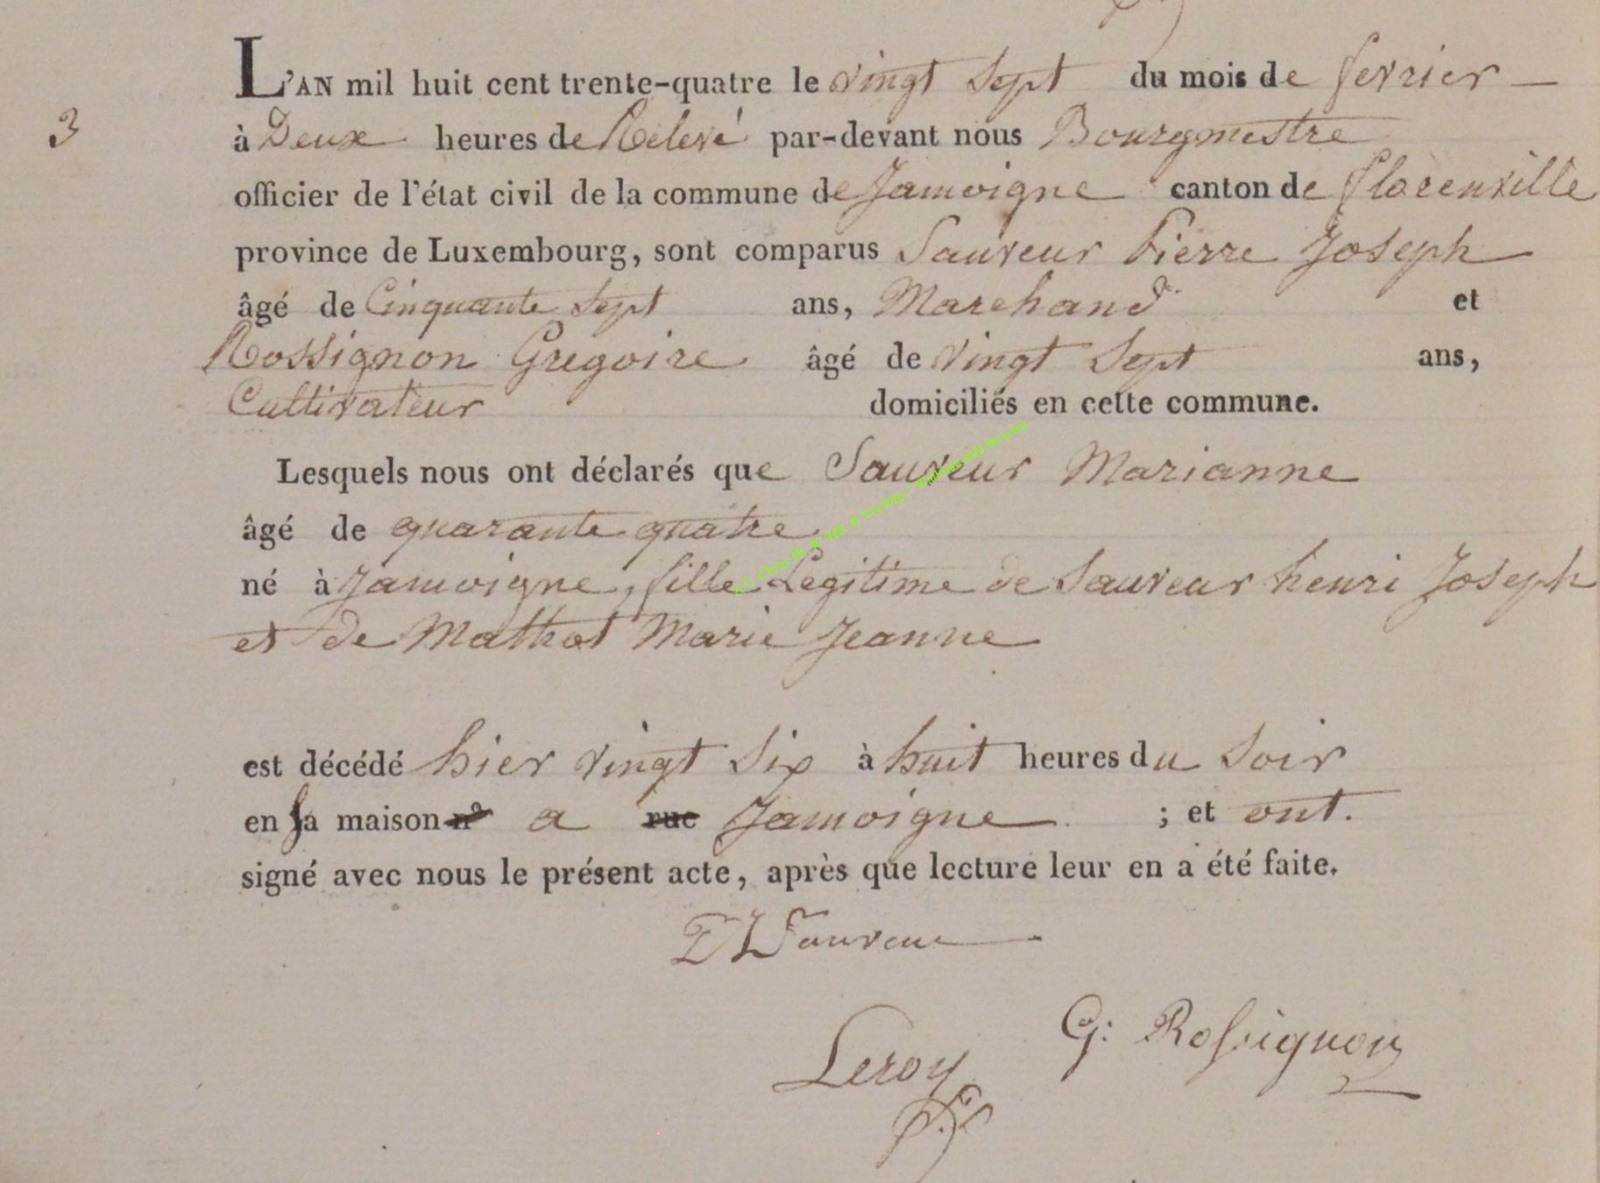 L'AN mil huit cent trente-quatre le vingt sept du mois de fevrier
3
à Deux heures de Relevé par-devant nous Bourgmestre
officier de l'état civil de la commune de Jamoigne canton de florenville
province de Luxembourg, sont comparus Sauveur Pierre Joseph
âgé de Cinquante Sept ans, Marchand et
Rossignon Gregoire âgé de vingt Sept ans,
Cultivateur domiciliés en cette commune.
Lesquels nous ont déclarés que Sauveur Marianne
âgé de quarante quatre
né à Jamoigne, fille Legitime de Sauveur henri Joseph
et de Mathot Marie Jeanne
est décédé hier vingt Six à huit heures du Soir
en sa maison n° a rue Jamoigne ; et ont.
signé avec nous le présent acte, après que lecture leur en a été faite.
PJ Sauveur
G: Rossignon
Leroy